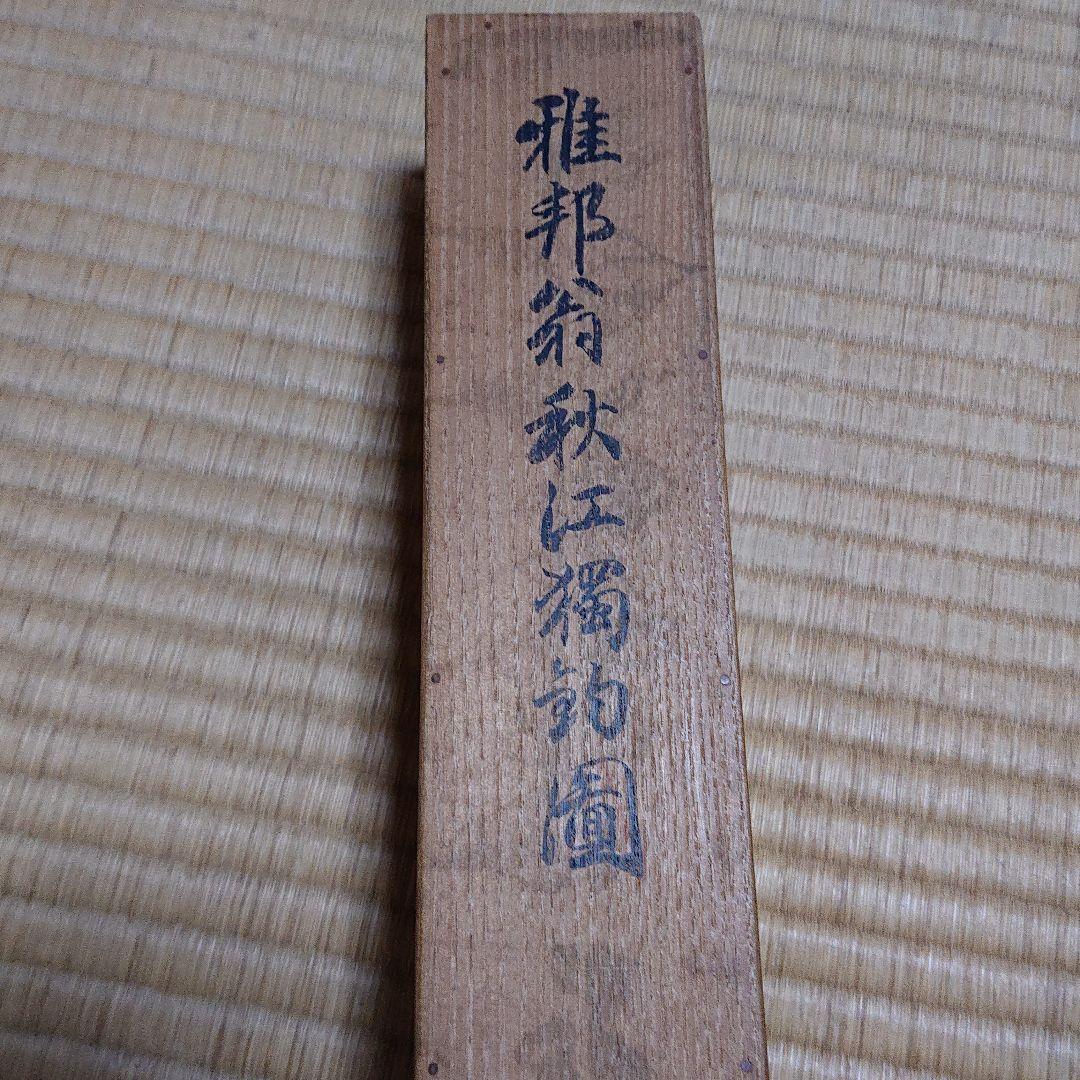 雅邦翁秋江獨釣圖